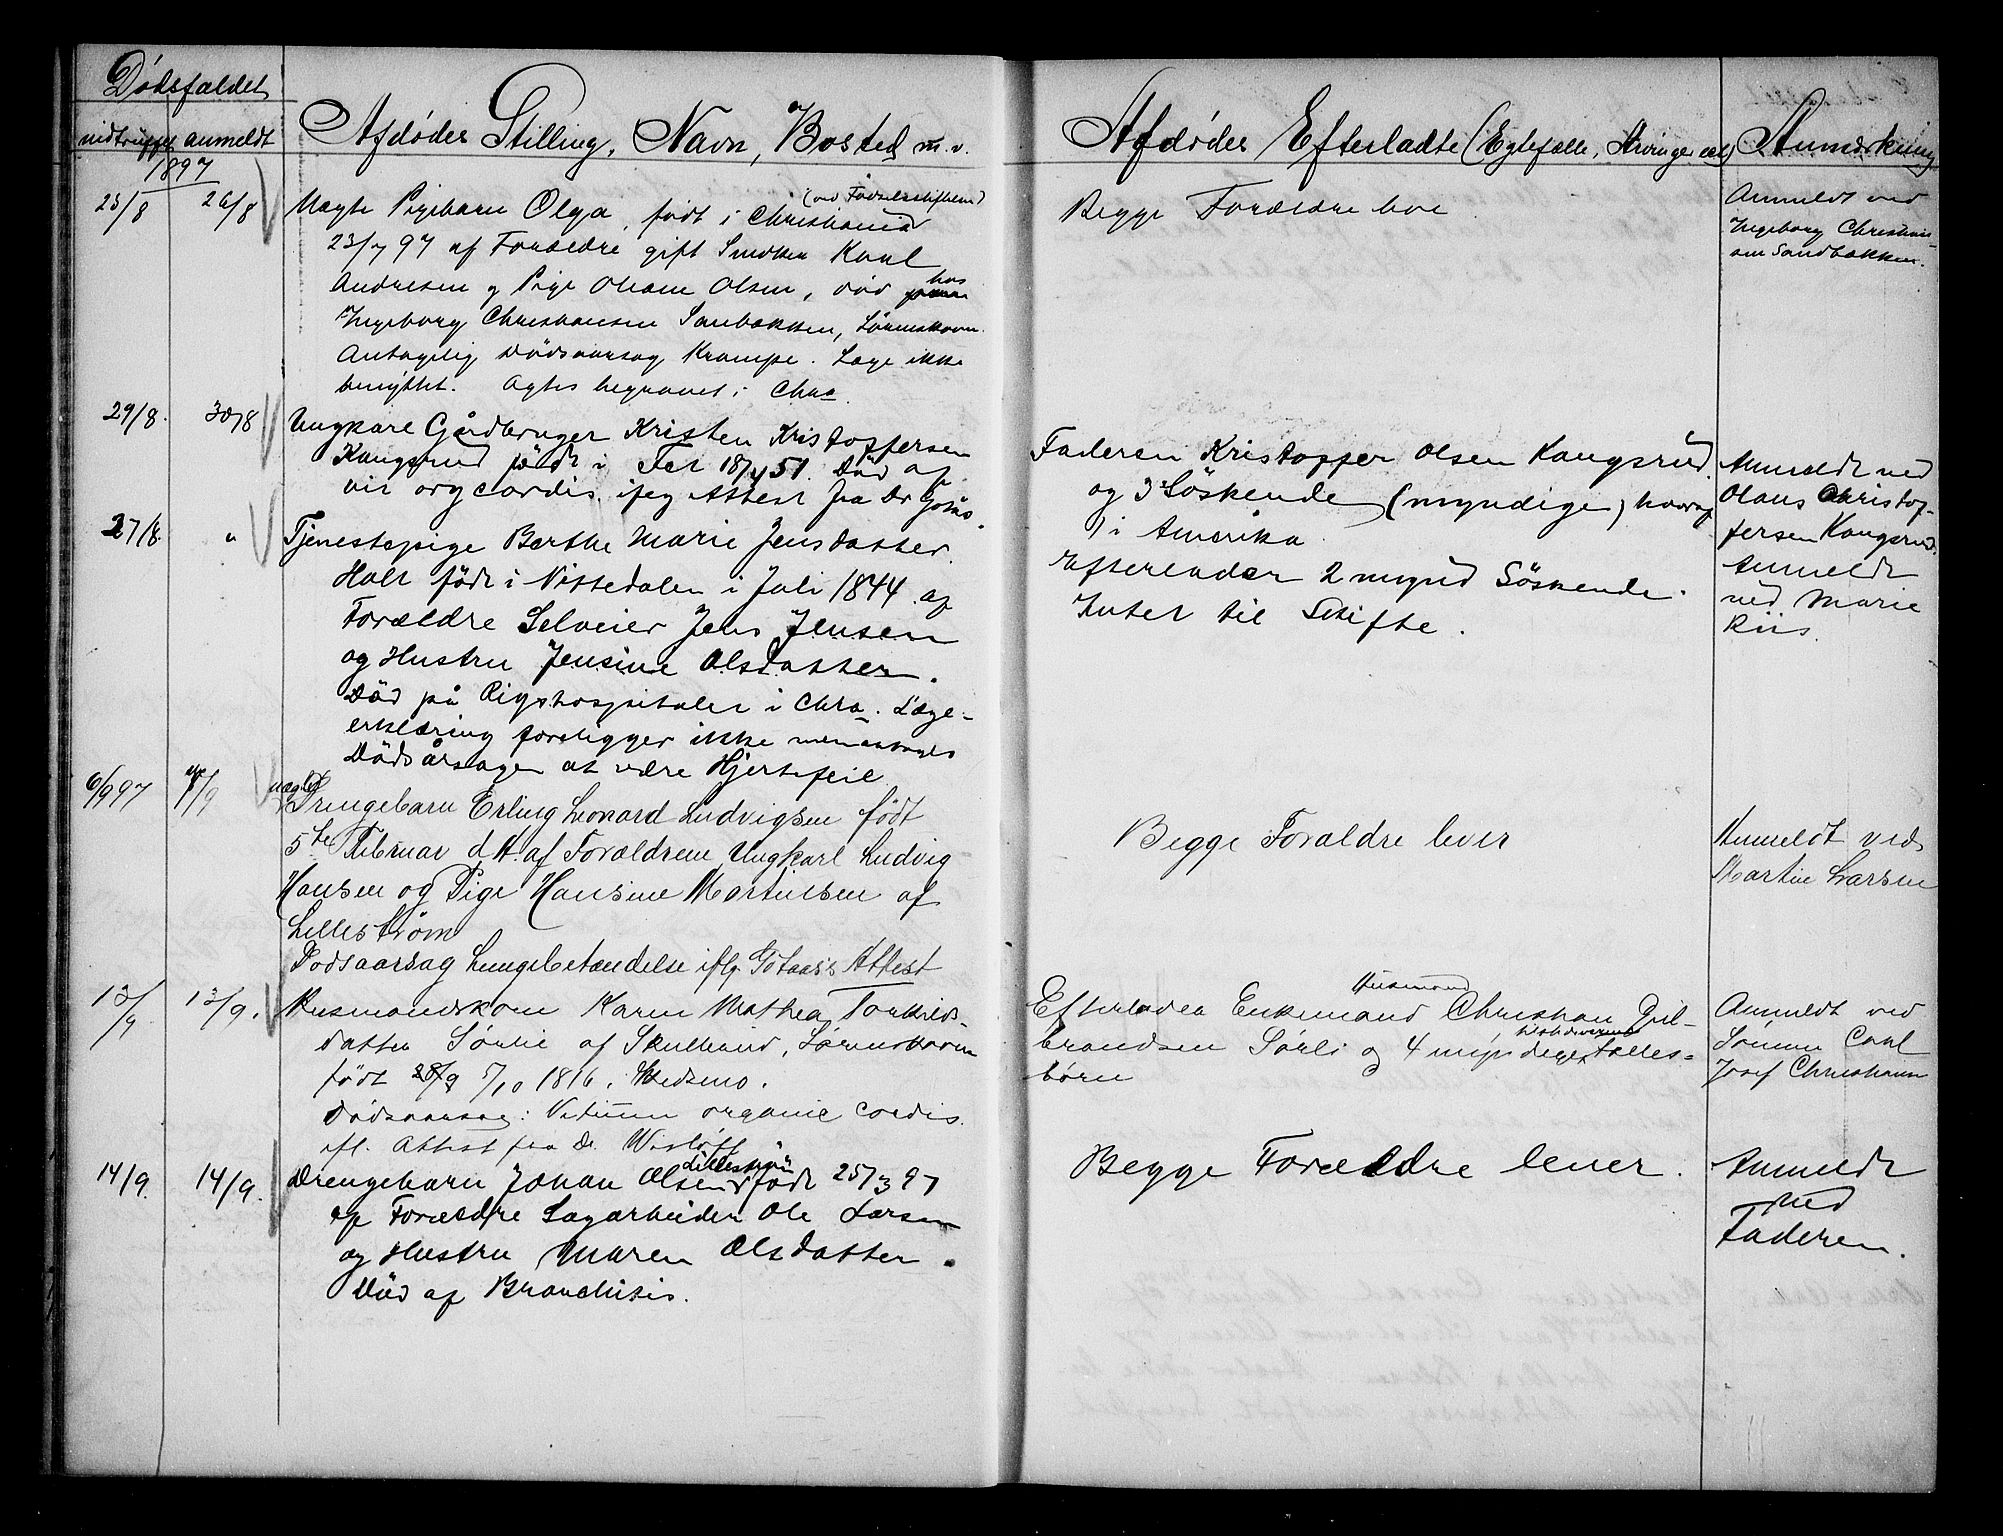 Dødsfaldet
indtruffet anmeldt
1897
Afdødes Stilling, Navn, Bosted m. v.
Afdødes Efterladte (Egtefælle, Arvinger etc)
Anmærkning
25/8 26/8
Uægte Pigebarn Olga, født i Christiania (ved Fødselsstiftelsen)
23/7 97 af Forældre gift Smed Karl
Andresen og Pige Oleane Olsen, død hos
Ingeborg Christiansen Sanbakken, Lørenskoven.
Antagelig Dødsaarsag Krampe. Læge ikke
benyttet. Agtes begravet i Chra.
Begge Forældre
Anmeldt ved
Ingeborg Christian-
sen Sandbakken.
29/8. 30/8
Ungkarl Gårdbruger Kristen Kristoffersen
Kongsrud født i Fet 18/4 51. Død af
vit org cordis. ifølg Attest fra Dr Gotås.
Faderen Kristoffer Olsen Kongsrud
og 3 Söskende (myndige) hvoraf
1 i Amerika
Anmeldt ved
Olaus Christof-
fersen Kongsrud.
27/8. "
Tjenestepige Berthe Marie Jensdatter
Holt født i Nittedalen i Juli 1844 af
Forældre Selveier Jens Jensen
og Hustru Jensine Olsdatter.
Död på Rigshospitalet i Chra. Læge-
erklæring foreligger ikke men antages
Dödsårsagen at være Hjertefeil
Efterlader 2 mynd Söskende.
Intet til Skifte.
Anmeldt
ved Marie
Riis.
6/9 97 7/9
uægte
Drengebarn Erling Leonard Ludvigsen født
5te Februar d. A. af Forældrene Ungkarl Ludvig
Hansen og Pige Hansine Martinsen af
Lillestrøm
Dødsaarsag Lungebetændelse iflg. Gotaas's Attest
Begge Forældre lever
Anmeldt ved
Martin Larsen
12/9 13/9.
Husmandskone Karen Mathea Torkilds-
datter Sørlie af Skullerud, Lørenskoven
født 28/9 5/10 1816 i Skedsmo.
Dødsaarsag: Vitium organic cordis.
ifl. Attest fra Dr. Wisløff
Husmand
Efterladea Enkemand Christian Gul-
brandsen Sørli og 4 myndige Fælles-
børn
Anmeldt ved
Sønnen Carl
Josef Christiansen
14/9. 14/9.
Lilleström
Drengebarn Johan Olsen født 25/3 97
af Forældre Sagarbeider Ole Larsen
og Hustru Maren Olsdatter.
Död af Bronchitis.
Begge Forældre lever.
Anmeldt
ved
Faderen.